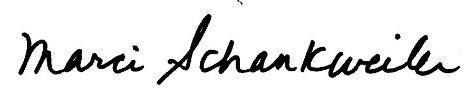 Marci Schankweiler